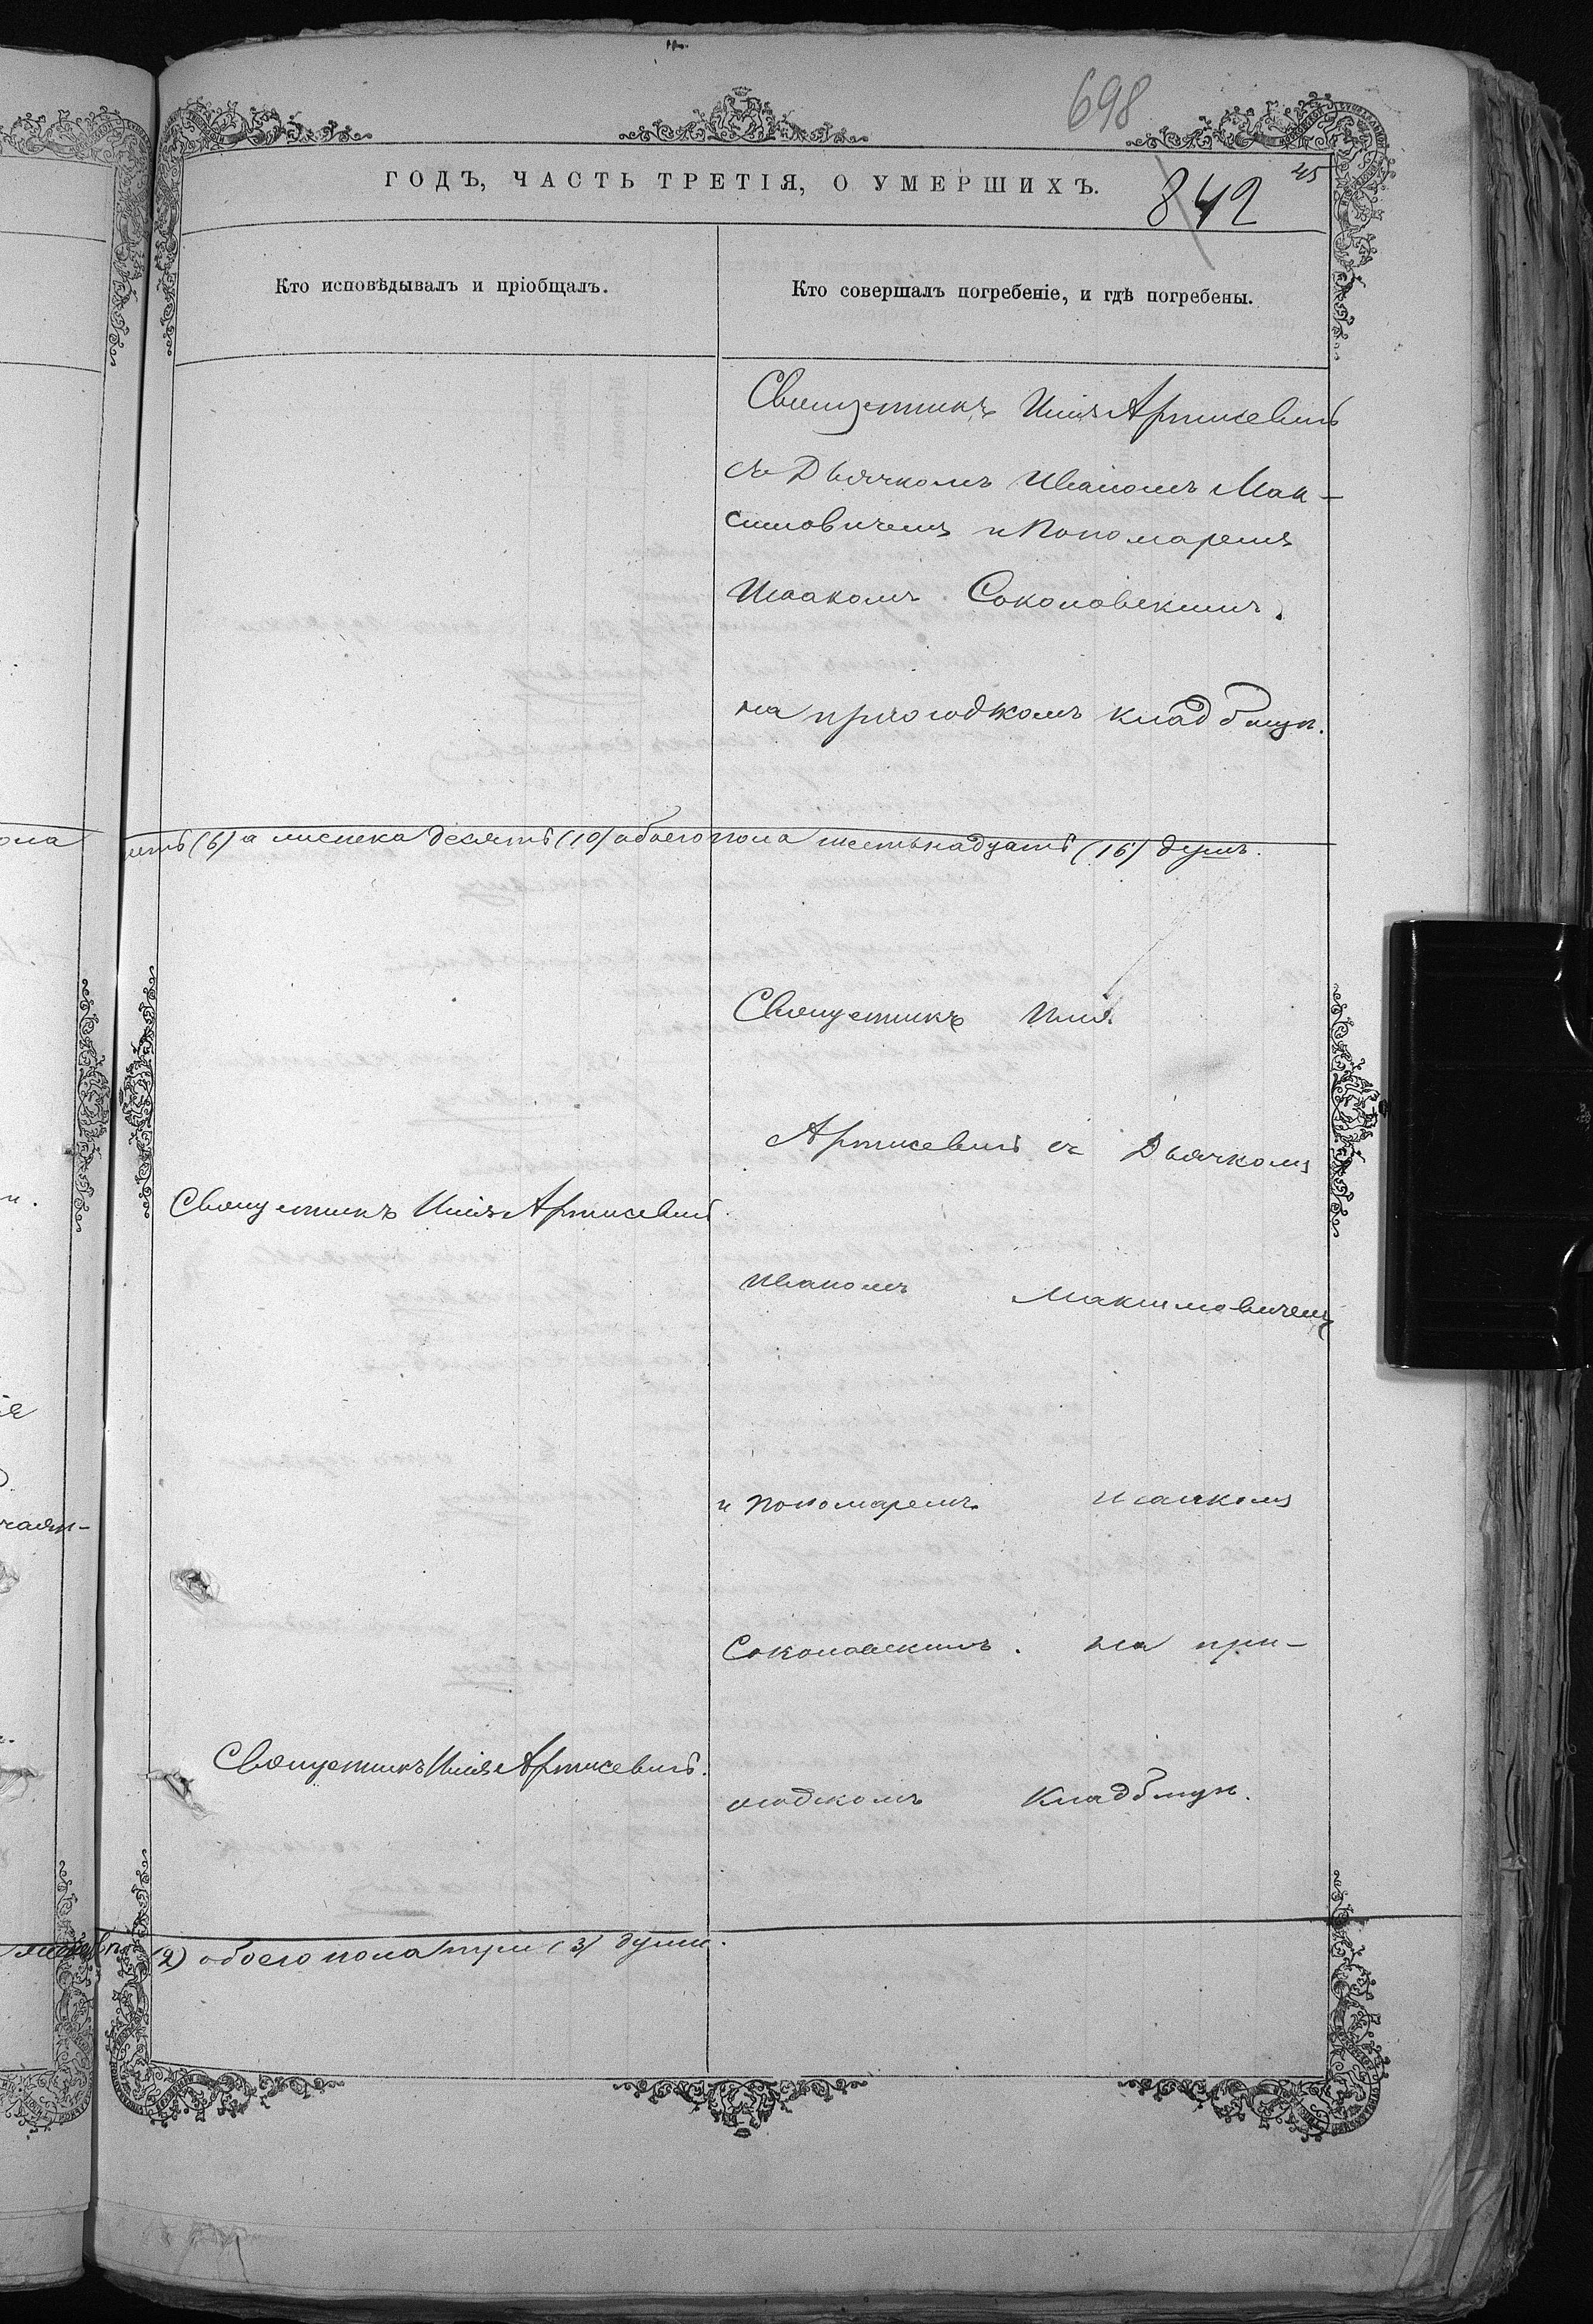 698
45
ГОДЪ, ЧАСТЬ ТРЕТІЯ, О УМЕРШИХЪ.
842
Кто исповѣдывалъ и пріобщалъ.
Кто совершалъ погребеніе, и гдѣ погребены.
Священникъ Илія Артисевичъ
съ Дьячкомъ Иваномъ Мак-
симовичемъ и Пономаремъ
Исаакомъ Соколовскимъ.
на приходскомъ кладбищѣ.
(6) а женска десять (10) обоего пола шестьнадцать (16) душъ.
Священникъ Илія
Артисевичъ съ Дьячкомъ
Священникъ Илія Артисевичъ
Иваномъ Максимовичемъ
и Пономаремъ Исаакомъ
Соколовскимъ. на при-
Священникъ Илія Артисевичъ.
ходскомъ кладбищѣ.
(2) обоего пола три (3) души.